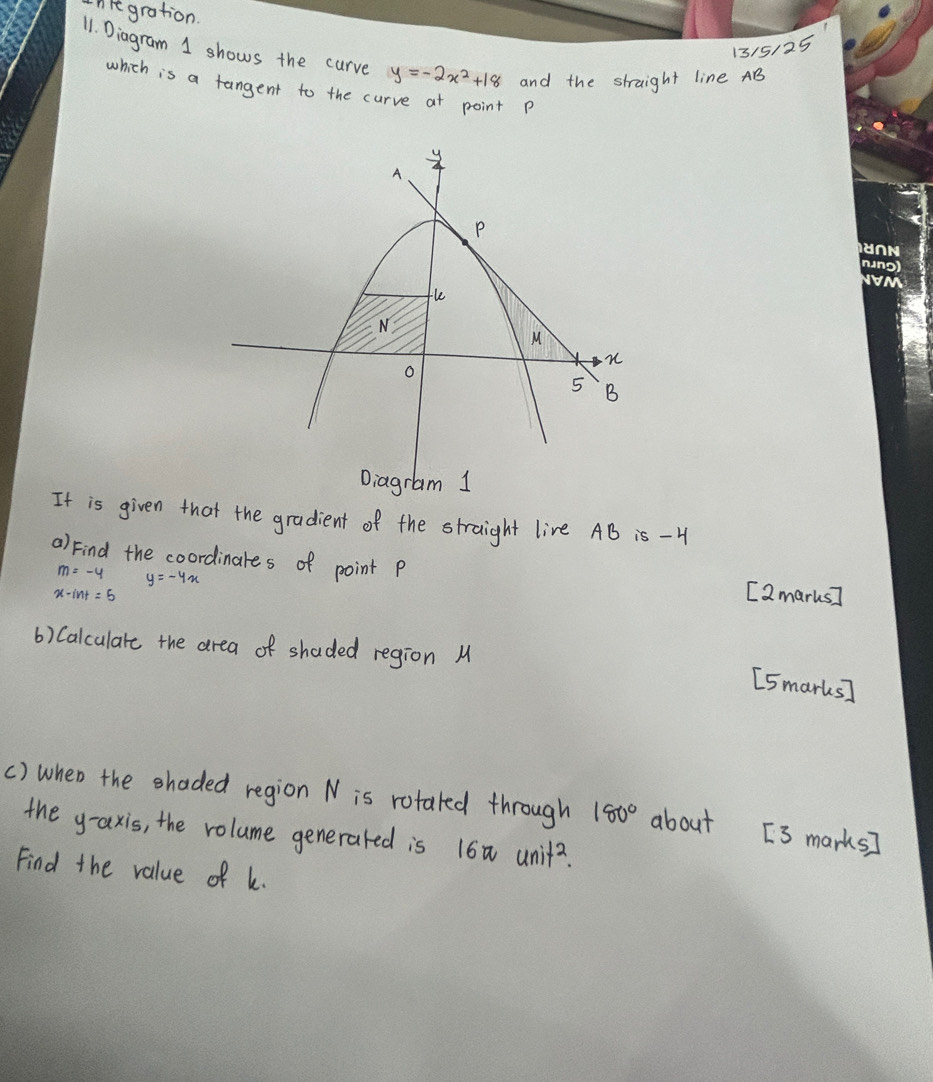 Integration.
13/5/25
11. Diagram 1 shows the curve y = -2x² + 18 and the straight line AB
which is a tangent to the curve at point P
y
A
P
k
N
M
x
0
5
B
Diagram 1
It is given that the gradient of the straight line AB is -4
a) Find the coordinates of point P
[2 marks]
m = -4 y = -4x
x-int = 5
b) Calculate the area of shaded region M
[5 marks]
c) When the shaded region N is rotated through 180° about
the y-axis, the volume generated is 16π unit².
[3 marks]
Find the value of k.
NUR
(Guru
WAN